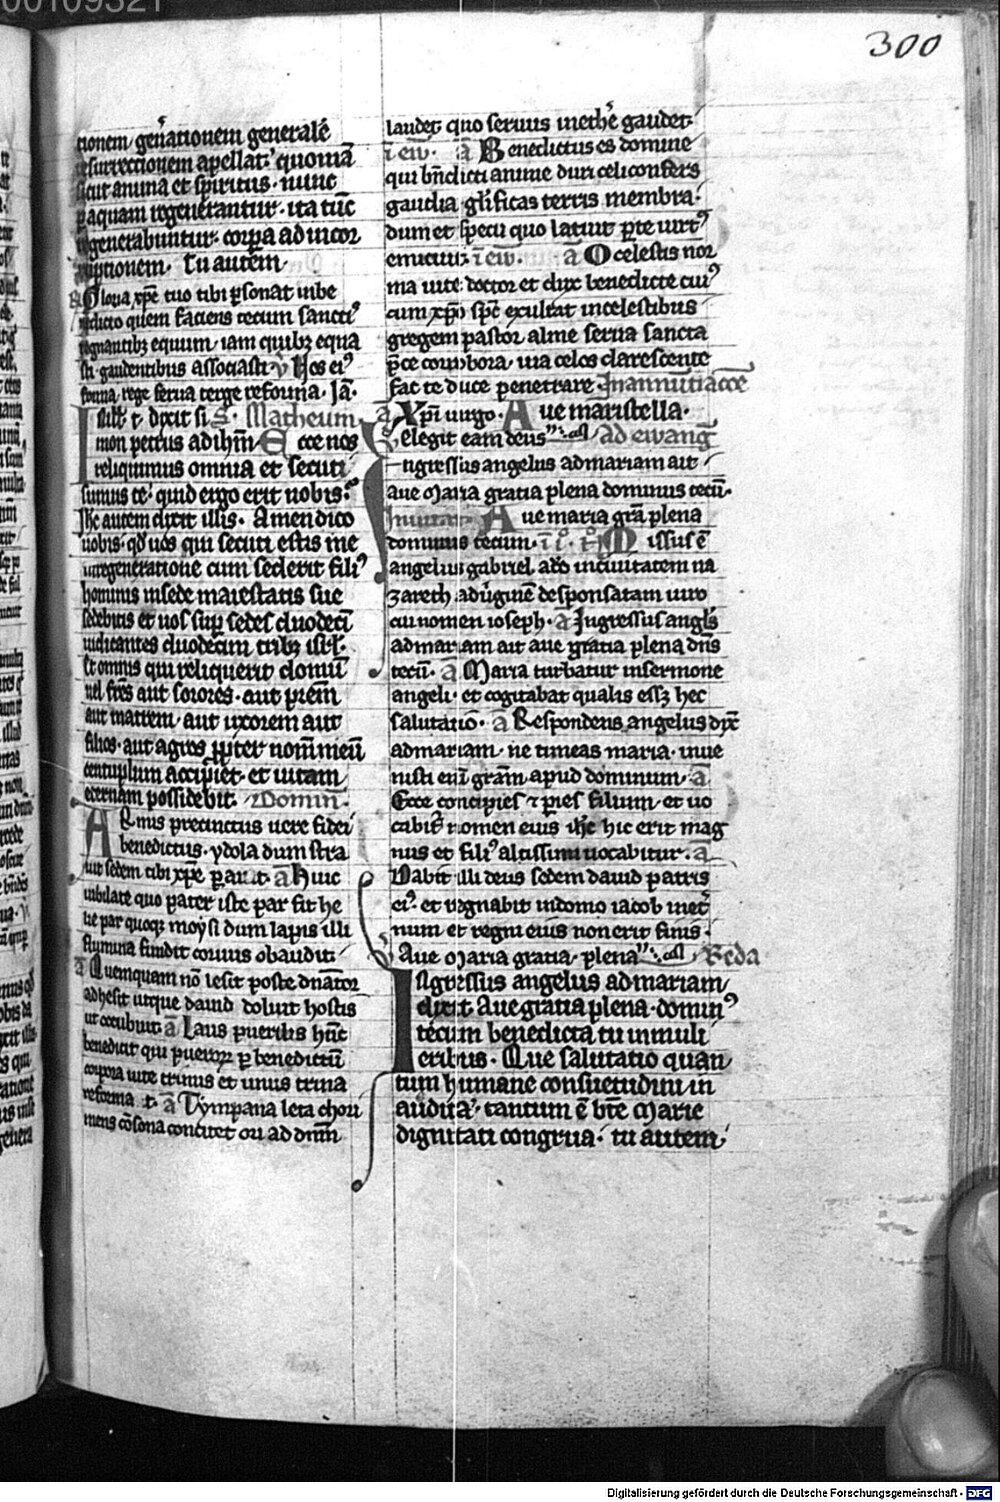 00109321
300
tionem gen̄ationem generalē
resurrectionem apellat. quoniā
sicut anima et spiritus. nunc
p aquam regenerantur. ita tūc
regenerabuntur. corpa ad incor
ruptionem. Tu autem
Gloria xp̄e tuo tibi psonat in be
nedicto quem faciens tecum sancti
regnantibꝫ equum. iam quibꝫ equa
sti gaudentibus associasti. v̄ Hos ei⁹
forma rege serua terge reforma. Ja.
In ill t. dixit si S. Matheum
mon petrus ad ihm̄ Ecce nos
reliquimus omnia et secuti
sumus te. quid ergo erit nobis.
Jhc autem dixit illis. Amen dico
uobis. qd uos qui secuti estis me
in regeneratione cum sederit fili⁹
hominis in sede maiestatis sue
sedebitis et uos sup sedes duodeci
iudicantes duodecim tribꝫ isrl.
Et omnis qui reliquerit domū
uel frēs aut sorores. aut prēm
aut matrem. aut uxorem aut
filios. aut agros ppter nom̄ meū
centuplum accipiet. et uitam
eternam possidebit. Domin.
Armis precinctus uere fidei
benedictus. ydola dum stra
uit sedem tibi xp̄e parat. ā Huic
iubilate quo pater iste par fit he
lie par quoqꝫ moysi dum lapis illi
flumina fundit coruus obaudit
ā Quemquam nō lesit poste dn̄ator
adhesit utque dauid doluit hostis
ut occubuit ā Laus pueribs hn̄c
benedicit qui pueroꝝ p benedictū
corpora uite trinus et unus trina
reforma t. ā Tympana leta chori
mens cōsona concitet ori ad dn̄m
laudet quo seruus in ethe gaudet
i ew. ā Benedictus es domine
qui bn̄dicti anime duri celi confers
gaudia glificas terris membra.
dum et specu quo latuit pte uirt⁹
emicuit i ew. ā O celestis nor
ma uite doctor et dux benedicte cui⁹
cum xp̄o spc exultat in celestibus
gregem pastor alme serua sancta
pce corrobora. uia celos clarescente
fac te duce penetrare In annuntiacōe
ā Xpi uirgo. Aue maris stella.
v̄ elegit eam deus ad ewang
Ingressus angelus ad mariam ait
aue Maria gratia plena dominus tecū.
Inuitat. Aue maria grā plena
dominus tecum. i i⁰. n̄ Missus ē
angelus gabriel a do in ciuitatem na
zareth. ad uḡinē desponsatam uiro
cui nomen ioseph. ā Ingressus angls
ad mariam ait aue gratia plena dn̄s
tecū. ā Maria turbatur in sermone
angeli. et cogitabat qualis essꝫ hec
salutatio. ā Respondens angelus dix̄
ad mariam. ne timeas maria. inue
nisti eni grām apud dominum. ā
Ecce concipies ⁊ pies filium. et uo
cabis nomen eius ihc hic erit mag
nus et fili⁹ altissimi uocabitur. ā
Dabit illi deus sedem dauid patris
ei⁹. et regnabit in domo iacob in et
num et regni eius non erit finis.
v̄ Aue Maria gratia. plena Beda
Ingressus angelus ad mariam
dixit Aue gratia plena. domin⁹
tecum benedicta tu in muli
eribus. Que salutatio quan
tum humane consuetudini in
audita. tantum ē bte Marie
dignitati congrua. tu autem
Digitalisierung gefördert durch die Deutsche Forschungsgemeinschaft - DFG